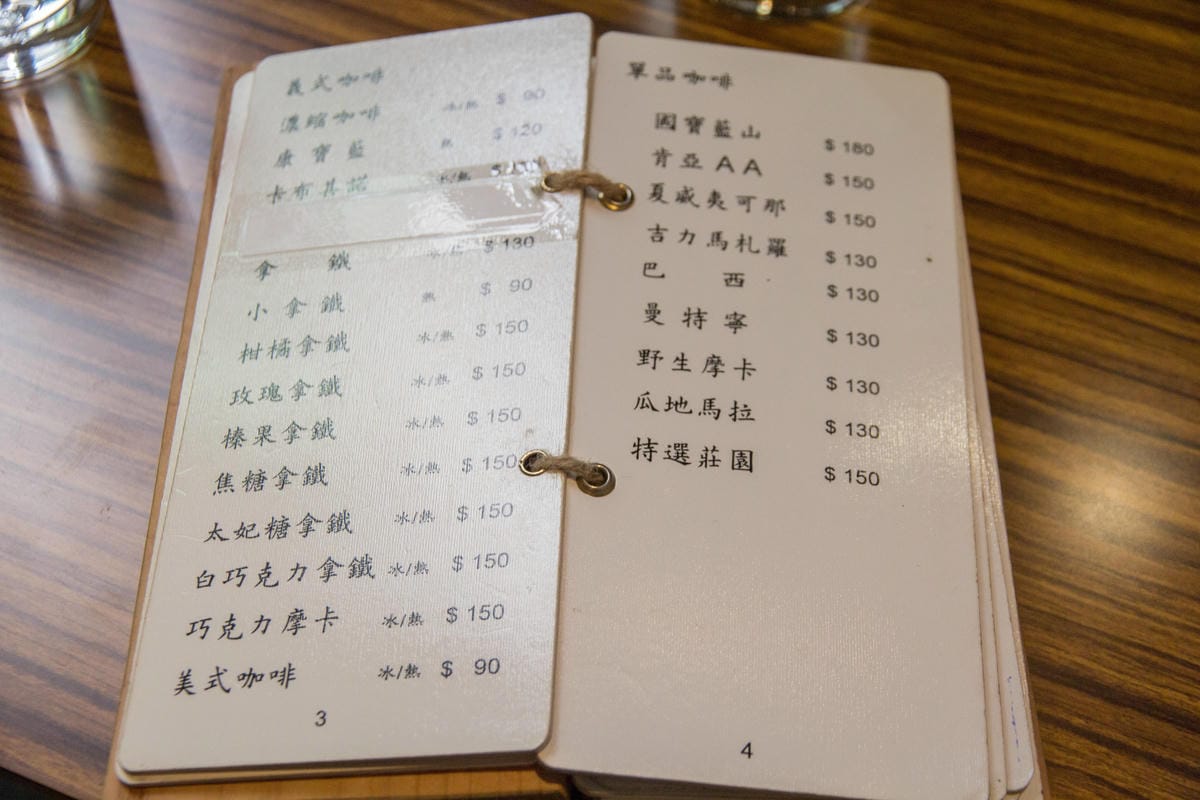 義式咖啡
濃縮咖啡 冰/熱 $ 90
康寶藍 熱 $ 120
卡布其諾 冰/熱
拿鐵 冰/熱 $ 130
小拿鐵 熱 $ 90
柑橘拿鐵 冰/熱 $ 150
玫瑰拿鐵 冰/熱 $ 150
榛果拿鐵 冰/熱 $ 150
焦糖拿鐵 冰/熱 $ 150
太妃糖拿鐵 冰/熱 $ 150
白巧克力拿鐵 冰/熱 $ 150
巧克力摩卡 冰/熱 $ 150
美式咖啡 冰/熱 $ 90
3
單品咖啡
國寶藍山 $ 180
肯亞AA $ 150
夏威夷可那 $ 150
吉力馬札羅 $ 130
巴西 $ 130
曼特寧 $ 130
野生摩卡 $ 130
瓜地馬拉 $ 130
特選莊園 $ 150
4